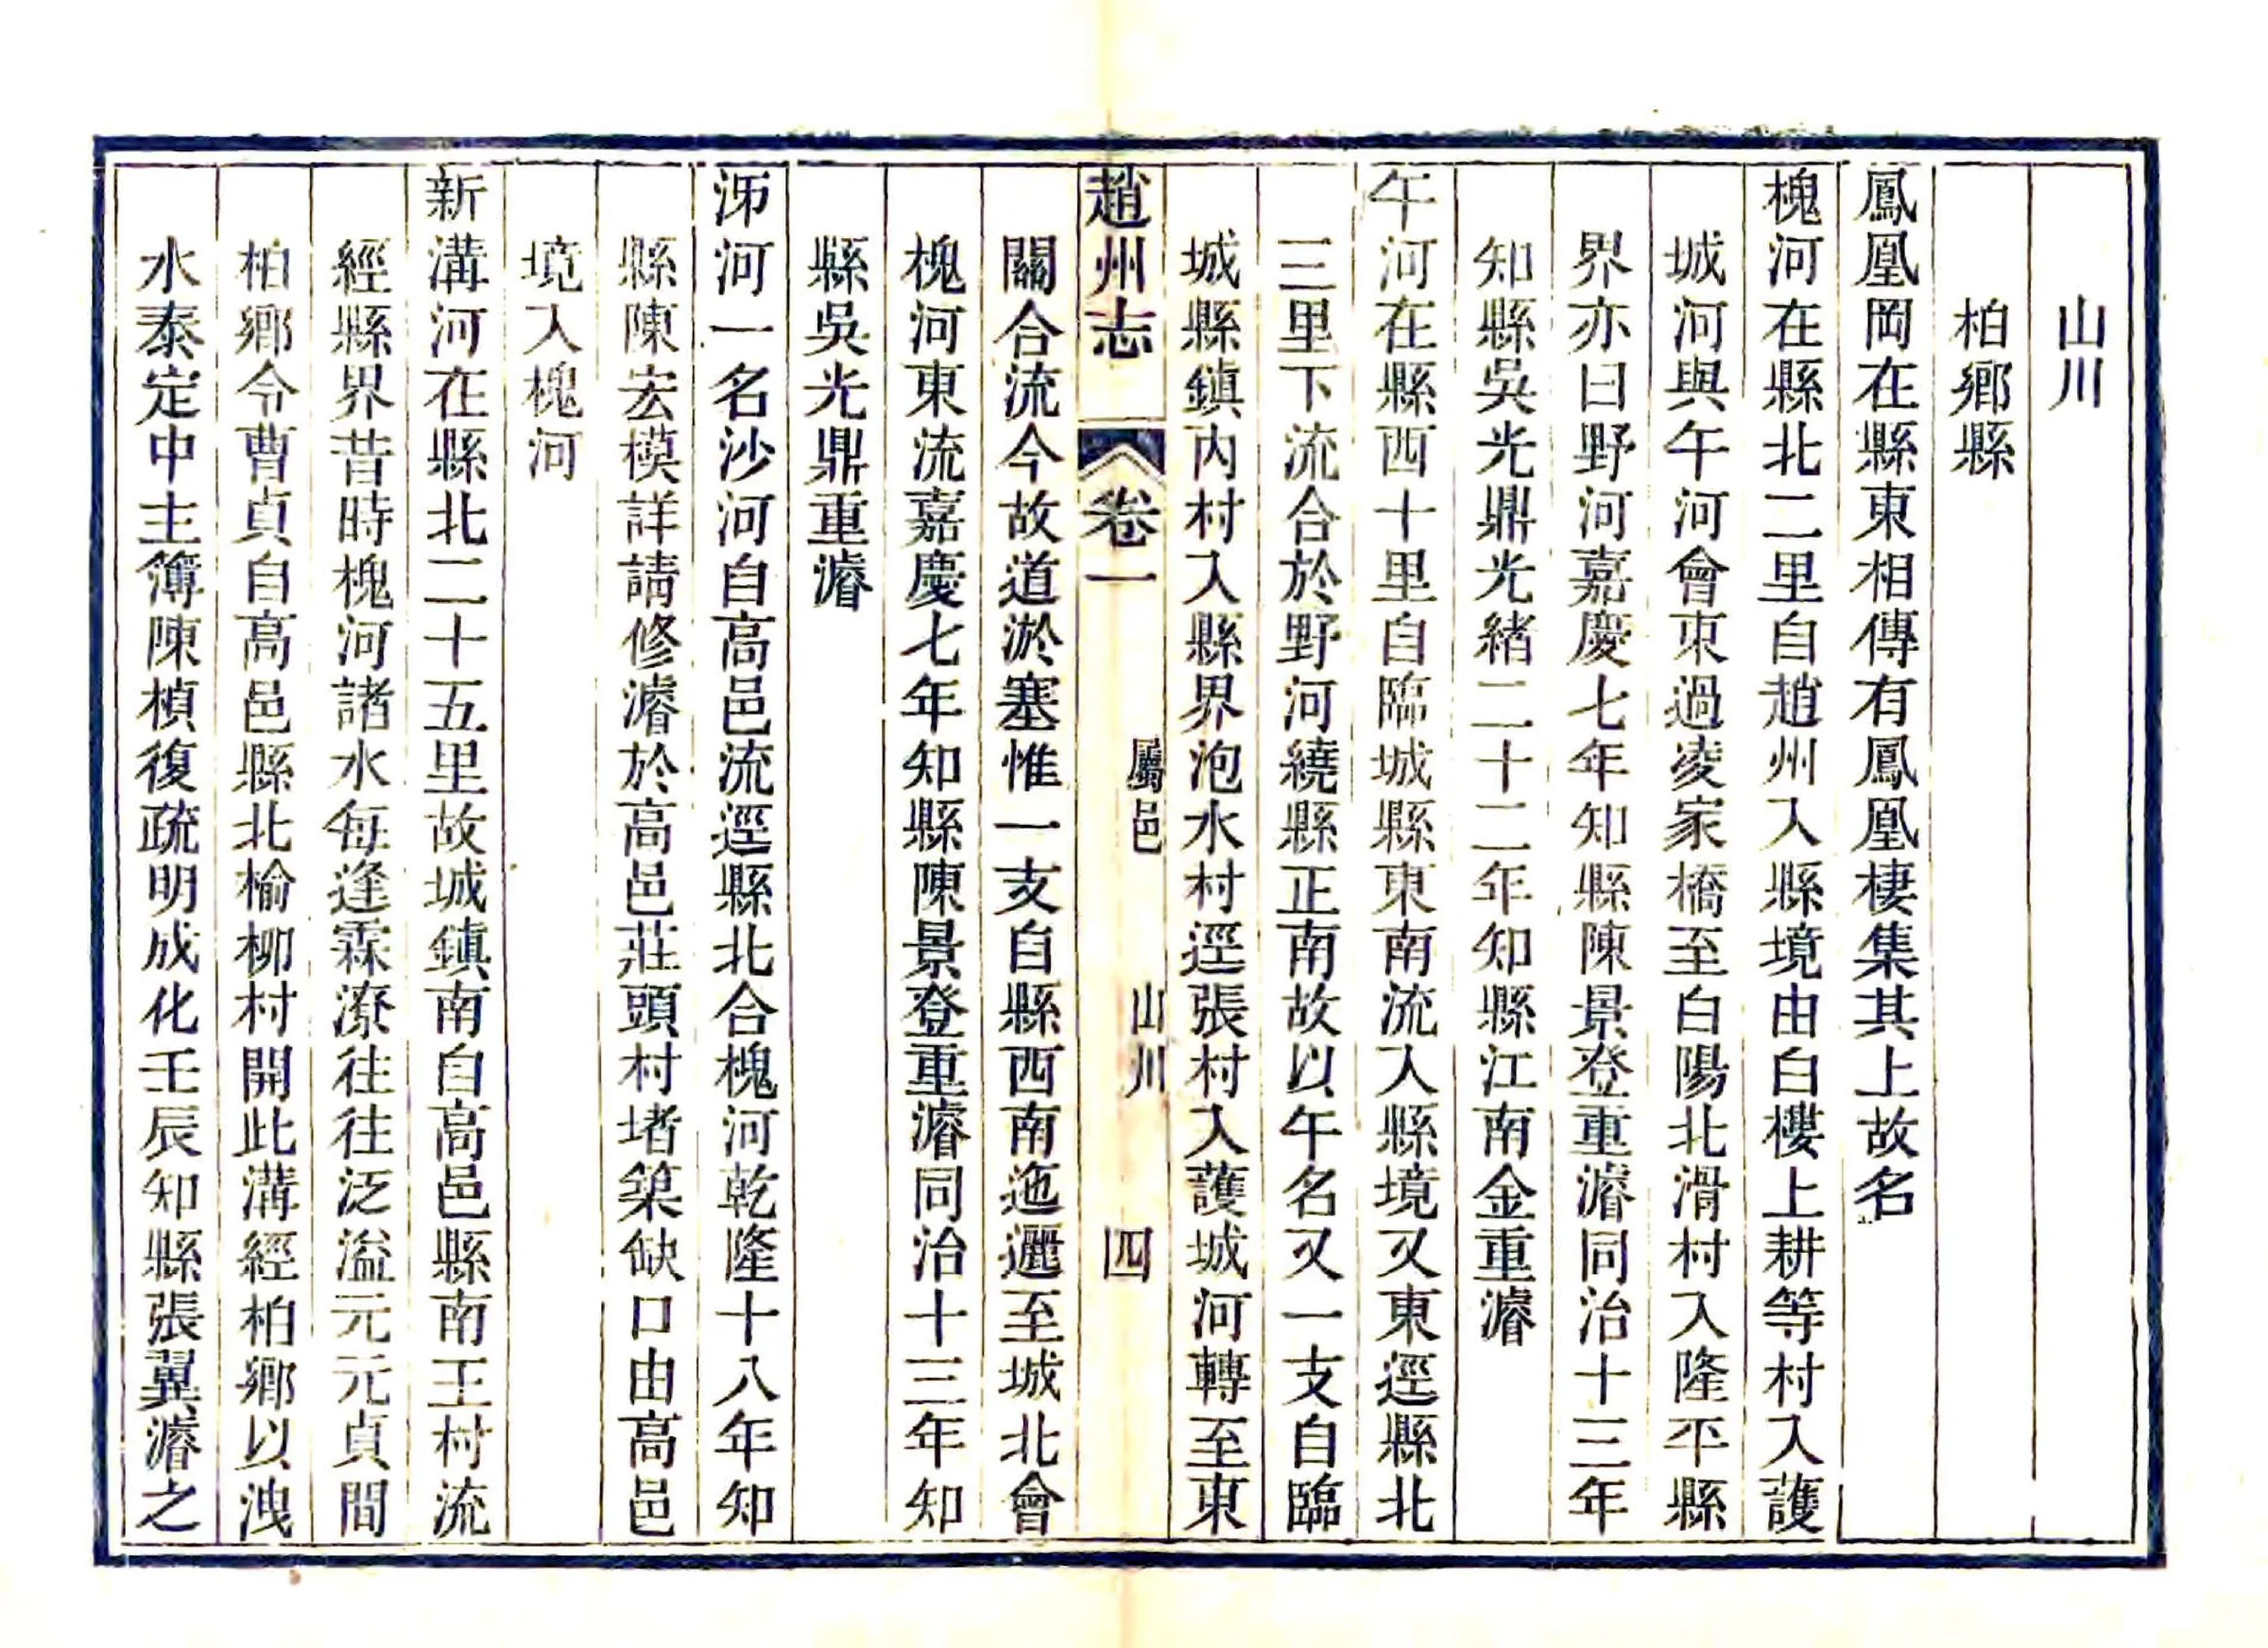 山川
柏鄉縣
鳳凰岡在縣東相傳有鳳凰棲集其上故名
槐河在縣北二里自趙州入縣境由白樓上耕等村入護
城河與午河會東過凌家橋至白陽北滑村入隆平縣
界亦曰野河嘉慶七年知縣陳景登重濬同治十三年
知縣吳光鼎光緒二十二年知縣江南金重濬
午河在縣西十里自臨城縣東南流入縣境又東逕縣北
三里下流合於野河繞縣正南故以午名又一支自臨
城縣鎮內村入縣界泡水村逕張村入護城河轉至東
趙州志 卷一 屬邑 山川 四
關合流今故道淤塞惟一支自縣西南迤邐至城北會
槐河東流嘉慶七年知縣陳景登重濬同治十三年知
縣吳光鼎重濬
泲河一名沙河自高邑流逕縣北合槐河乾隆十八年知
縣陳宏模詳請修濬於高邑莊頭村堵築缺口由高邑
境入槐河
新溝河在縣北二十五里故城鎮南自高邑縣南王村流
經縣界昔時槐河諸水每逢霖潦往往泛溢元元貞間
柏鄉令曹貞自高邑縣北榆柳村開此溝經柏鄉以洩
水泰定中主簿陳楨復疏明成化壬辰知縣張翼濬之